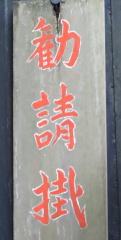 勧請掛